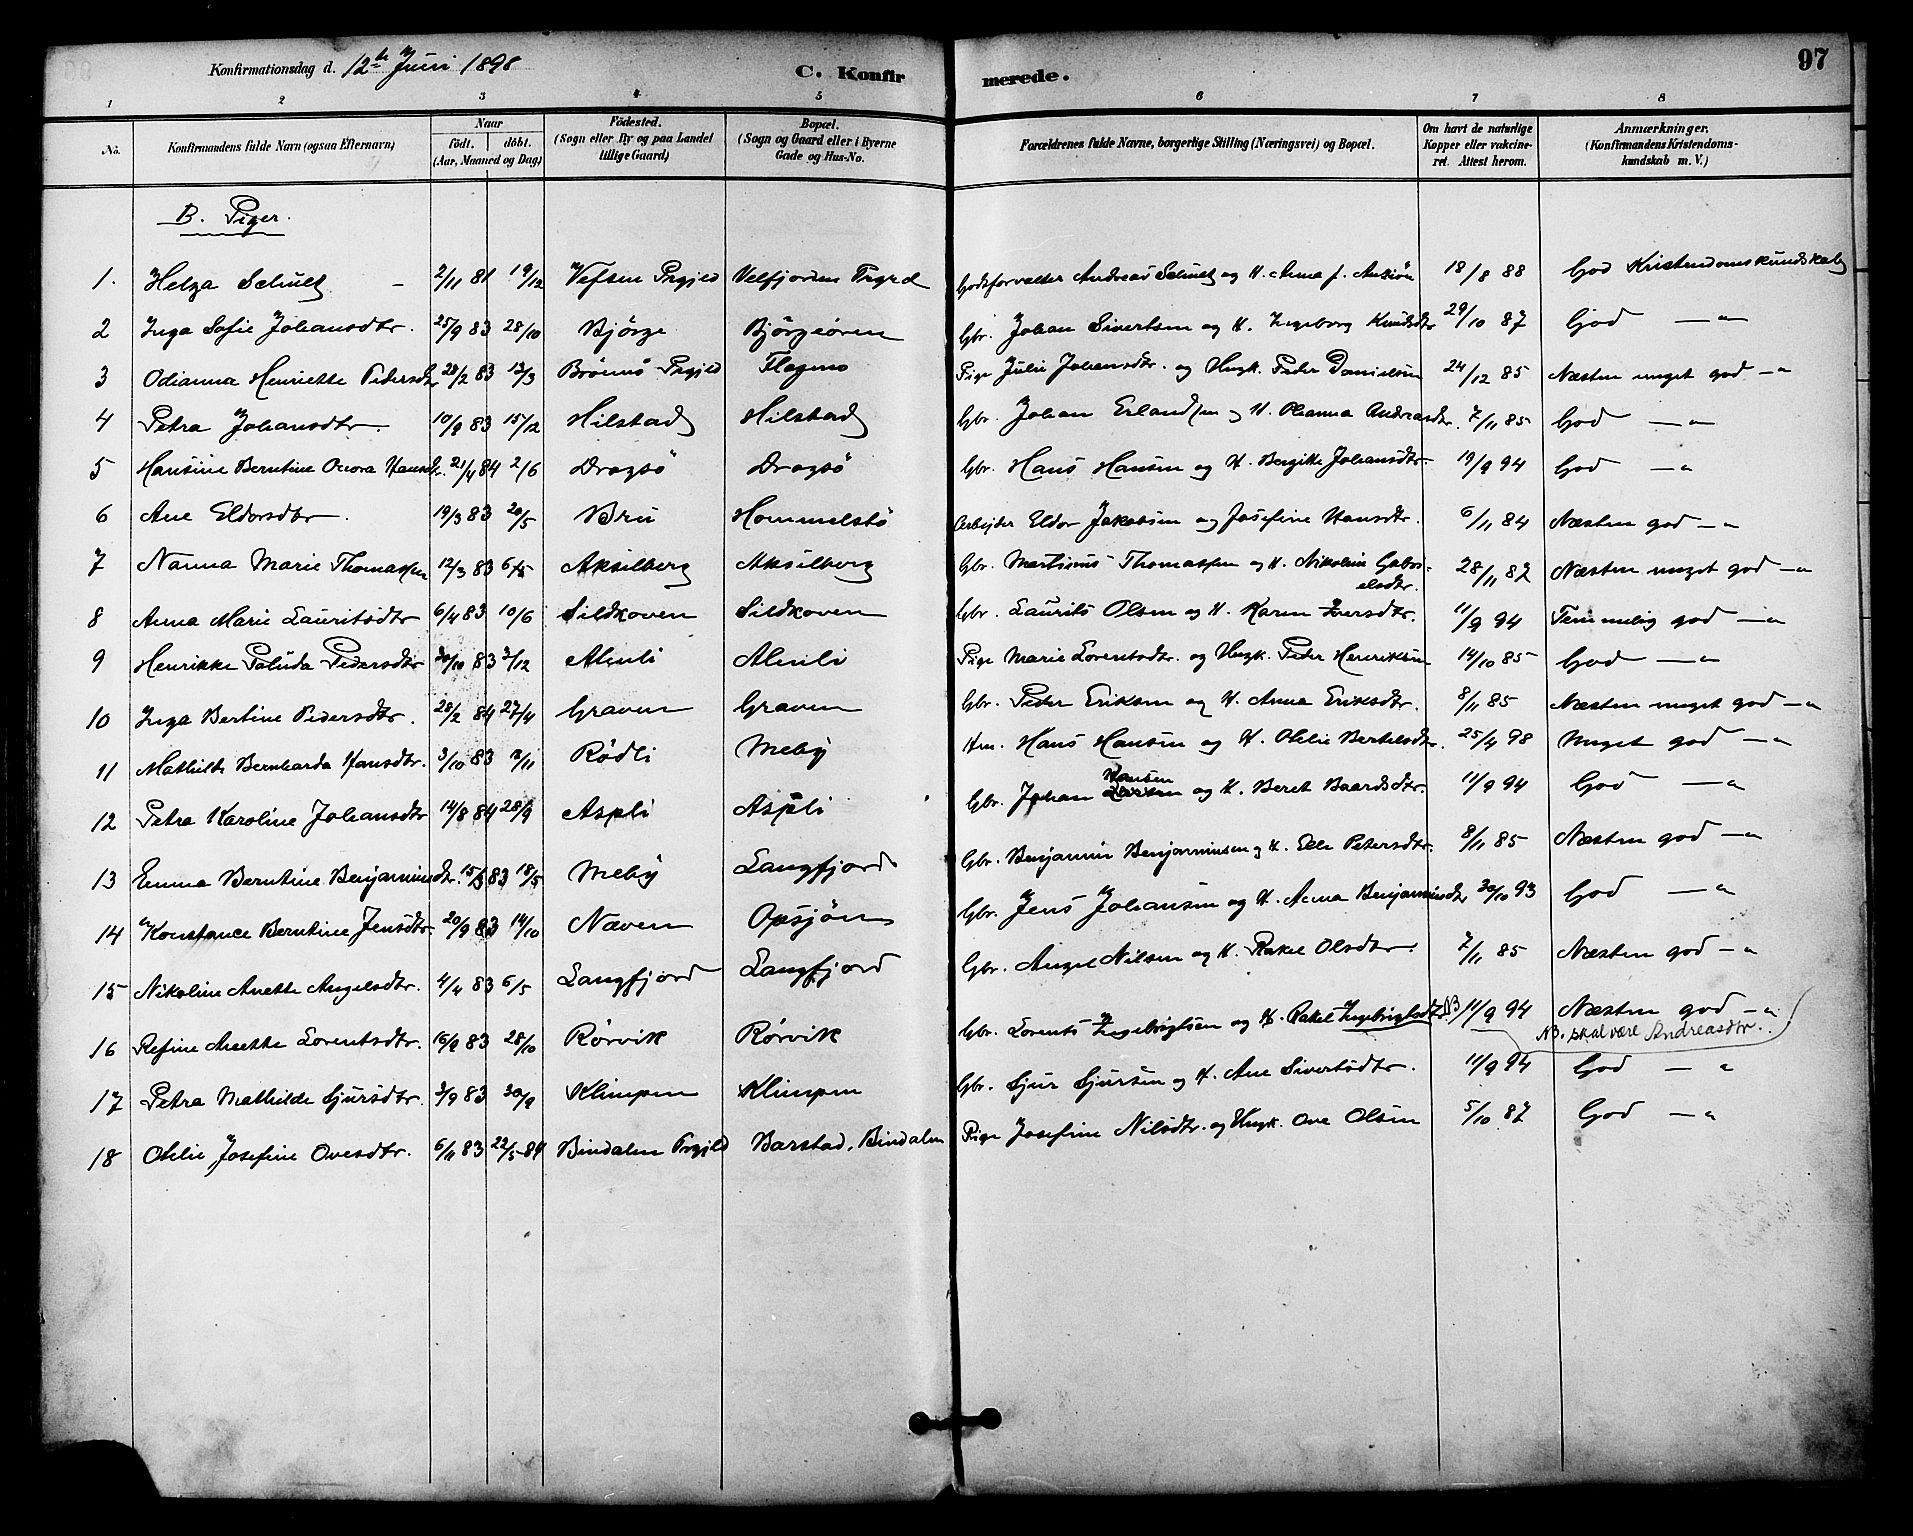 Konfirmationsdag d. 12te Juni 1898 C. Konfirmerede. 97
1 2 3 4 5 6 7 8
No. Konfirmandens fulde Navn (ogsaa Efternavn) Naar födt. döbt. (Aar, Maaned og Dag) Födested. (Sogn eller By og paa Landet tillige Gaard) Bopæl. (Sogn og Gaard eller i Byerne Gade og Hus-No. Forældrenes fulde Navne, borgerlige Stilling (Næringsvei) og Bopæl. Om havt de naturlige Kopper eller vakcineret. Attest herom. Anmærkninger. (Konfirmandens Kristendomskundskab m. V.)
B. Piger.
1. Helga Schult 2/11 81 19/12 Vefsen Prgjeld Velfjorden Godsforvalter Andreas Schult og H. Anna f. 18/8 88 God Kristendomskundskab
2 Inga Sofie Johansdtr. 25/9 83 28/10 Bjørge Bjørgeøren Gbr. Johan Sivertsen og H. Ingeborg Knudsdtr 29/10 87 God — "
3 Odianna Henriette Pedersdtr 28/2 83 13/3 Brönnö Prgjeld Flagmo Pige Julie Johansdtr. og Ungk. Peder Danielsen 24/12 85 Næsten meget god — "
4 Petra Johansdtr. 10/9 83 15/12 Hilstad Hilstad Gbr. Johan Erlandsen og H. Olianna Andreasdtr. 7/11 85 God — "
5 Hansine Berntine Hansdtr. 21/4 84 2/6 Dragsö Dragsö Gbr. Hans Hansen og H. Bergitte Johansdtr. 19/9 94 God — "
6 Ane Eldorsdtr. 19/3 83 20/5 Bru Hommelstö Arbejder Eldor Jakobsen og Josefine Hansdtr. 6/11 84 Næsten god — "
7 Nanna Marie Thomassen 12/3 83 6/5 Aksilberg Aksilberg Gbr. Martinus Thomassen og H. Nikoline Gabrielsdtr. 28/11 87 Næsten meget god — "
8 Anna Marie Lauritsdtr 6/4 83 10/6 Sildkoven Sildkoven Gbr. Laurits Olsen og H. Karen Iversdtr. 11/9 94 Temmelig god — "
9 Henrikke Paluda Pedersdtr 30/10 83 2/12 Almli Almli Pige Marie Lorentsdtr. og Ungk. Peder Henriksen 14/10 85 God — "
10 Inga Bertine Pedersdtr. 28/2 84 27/4 Graven Graven Gbr. Peder Eriksen og H. Anna Eriksdtr. 8/11 85 Næsten meget god — "
11 Mathilde Bernharda Hansdtr. 3/10 83 Rødli Meby Hans Hansen og H. Olelie Bertelsdtr. 25/4 98 Meget god — "
12 Petra Karoline Johansdtr 14/8 84 28/9 Aspli Aspli Gbr. Johan Hansen og H. Beret Baardsdtr. 11/9 94 God — "
13 Emma Berntine Benjaminsdtr. 15/3 83 18/5 Meby Langfjord Gbr. Benjamin Benjaminsen og H. Elle Petersdtr. 8/11 85 Næsten god — "
14 Konstance Berntine Jensdtr. 20/9 83 14/10 Næven Opsjön Gbr. Jens Johansen og H. Anna Benjaminsdtr 30/10 93 God — "
15 Nikoline Anette Angelsdtr. 4/4 83 6/5 Langfjord Langfjord Gbr. Angel Nilsen og H. Rakel Olsdtr. 7/11 85 Næsten god — "
16 Refine Anette Lorentsdtr. 16/9 83 28/10 Rørvik Rørvik Gbr. Lorents Ingebrigtsen og H. Rakel Ingebrigtsdtr. NB 11/9 94 Næsten god — "
NB. skal være Andreasdtr.
17 Petra Mathilde Sjursdtr. 3/9 83 30/9 Klimpen Klimpen Gbr. Sjur Sjursen og H. Ane Sivertsdtr. 11/9 94 God — "
18 Otelie Josefine Ovesdtr. 6/11 83 22/5 84 Bindalen Prgjeld Barstad, Bindalen Pige Josefine Nilsdtr. og Ungk. Ove Olsen 5/10 87 God — "